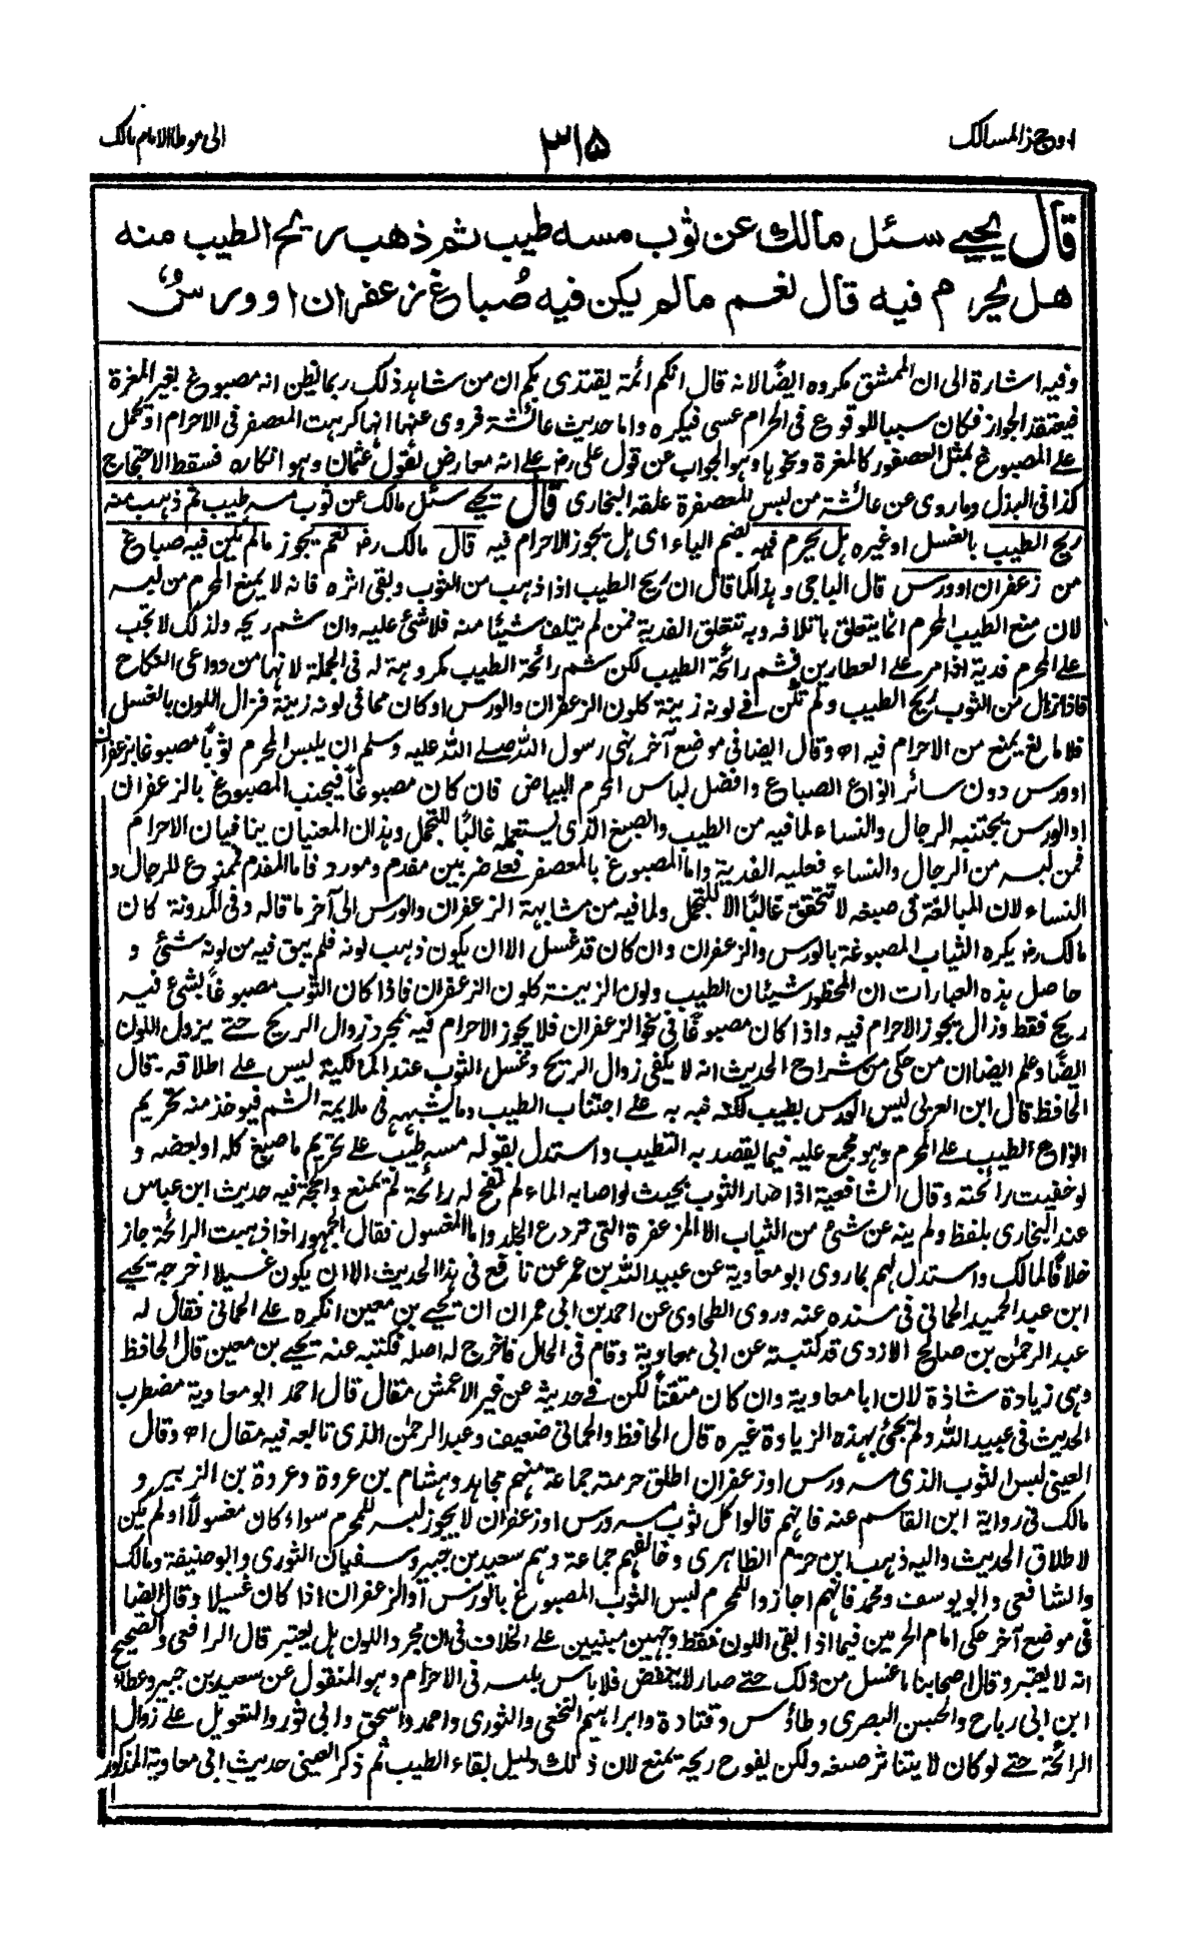 اوجز المسالك
۳۱۵
الى موطا الامام مالك
قال يحيى سئل مالك عن ثوب مسه طيب ثم ذهب ريح الطيب منه
هل يحرم فيه قال نعم مالم يكن فيه صُباغ زعفران او ورسٌ
وفيه اشارة الى ان الممشق مكروه ايضا لانه قال انكم ائمة يقتدى بكم ان من شاهد ذلك ربما يظن انه مصبوغ بغير المغرة
فيعتقد الجواز فكان سببا للوقوع فى الحرام عسى فيكره واما حديث عائشة فروى عنها انها كرهت المعصفر فى الاحرام او تحمل
على المصبوغ بمثل العصفور كالمغرة ونحوها وهو الجواب عن قول على رض على انه معارض بقول عثمان وهو انكاره فسقط الاحتجاج
كذا فى البذل وما روى عن عائشة من لبس المعصفرة علقه البخارى قال يحيى سئل مالك عن ثوب مسه طيب ثم ذهب منه
ريح الطيب بالغسل او غيره هل يحرم فيه بضم الياء اى هل يجوز الاحرام فيه قال مالك رض نعم يجوز مالم يكن فيه صباغ
من زعفران او ورس قال الباجى وهذا كما قال ان ريح الطيب اذا ذهب من الثوب وبقى اثره فانه لا يمنع المحرم من لبسه
لان منع الطيب المحرم انما يتعلق باتلافه وبه تتعلق الفدية فمن لم يتلف شيئا منه فلا شئ عليه وان شم ريحه ولذلك لا تجب
على المحرم فدية اذا مر على العطارين فشم رائحة الطيب لكن شم رائحة الطيب مكروهة له فى الجملة لانها من دواعى النكاح
فاذا زال من الثوب ريح الطيب ولم تكن فى لونه زينة كلون الزعفران والورس او كان مما فى لونه زينة فزال اللون بالغسل
فلا مانع يمنع من الاحرام فيه اه وقال ايضا فى موضع آخر نهى رسول الله صلى الله عليه وسلم ان يلبس المحرم ثوبًا مصبوغا بزعفران
او ورس دون سائر انواع الصباغ وافضل لباس المحرم البياض فان كان مصبوغًا فيجنب المصبوغ بالزعفران
او الورس يجتنبه الرجال والنساء لما فيه من الطيب والصبغ الذى يستعمله غالبًا للتجمل وهذان المعنيان ينافيان الاحرام
فمن لبسه من الرجال والنساء فعليه الفدية واما المصبوغ بالمعصفر فعلى ضربين مقدم ومورد فاما المقدم فممنوع للرجال و
النساء لان المبالغة فى صبغه لا تتحقق غالبًا الا للتجمل ولما فيه من مشابهة الزعفران والورس الى آخر ما قاله وفى المدونة كان
مالك رض يكره الثياب المصبوغة بالورس والزعفران وان كان قد غسل الا ان يكون ذهب لونه فلم يبق فيه من لونه شئ و
حاصل هذه العبارات ان المحظور شيئان الطيب ولون الزينة كلون الزعفران فاذا كان الثوب مصبوغًا بشئ فيه
ريح فقط وزال يجوز الاحرام فيه واذا كان مصبوغًا فى نحو الزعفران فلا يجوز الاحرام فيه بمجرد زوال الريح حتى يزول اللون
ايضًا وعلم ايضا ان من حكى من شراح الحديث انه لا يكفى زوال الريح وغسل الثوب عند المالكية ليس على اطلاقه۔ قال
الحافظ قال ابن العربى ليس الورس بطيب لكنه نبه به على اجتناب الطيب وما يشبهه فى ملايمة الشم فيوخذ منه تحريم
انواع الطيب على المحرم وهو مجمع عليه فيما يقصد به التطيب واستدل بقوله مسه طيب على تحريم ما صبغ كله او بعضه و
لو خفيت رائحته وقال الشافعية اذا صار الثوب بحيث لو اصابه الماء لم تفح له رائحة لم يمنع والحجة فيه حديث ابن عباس
عند البخارى بلفظ ولم ينه عن شئ من الثياب الا المزعفرة التى تردع الجلد واما المغسول فقال الجمهور اذا ذهبت الرائحة جاز
خلافًا لمالك واستدل لهم بما روى ابو معاوية عن عبيد الله بن عمر عن نافع فى هذا الحديث الا ان يكون غسيلا اخرجه يحيى
ابن عبد الحميد الحمانى فى مسنده عنه وروى الطحاوى عن احمد بن ابى عمران ان يحيى بن معين انكره على الحمانى فقال له
عبد الرحمٰن بن صالح الازدى قد كتبته عن ابى معاوية وقام فى الحال فاخرج له اصله فكتبه عنه يحيى بن معين قال الحافظ
وهى زيادة شاذة لان ابا معاوية وان كان متقنًا لكن فى حديثه عن غير الاعمش مقال قال احمد ابو معاوية مضطرب
الحديث فى عبيد الله ولم يجئ بهذه الزيادة غيره قال الحافظ والحمانى ضعيف وعبد الرحمٰن الذى تابعه فيه مقال اه وقال
العينى لبس الثوب الذى مسه ورس او زعفران اطلق حرمته جماعة منهم مجاهد وهشام بن عروة وعروة بن الزبير و
مالك فى رواية ابن القاسم عنه فانهم قالوا كل ثوب مسه ورس او زعفران لا يجوز لبسه للمحرم سواء كان مغسولًا او لم يكن
لاطلاق الحديث واليه ذهب ابن حزم الظاهرى وخالفهم جماعة وهم سعيد بن جبير وسفيان الثورى وابو حنيفة ومالك
والشافعى وابو يوسف ومحمد فانهم اجازوا للمحرم لبس الثوب المصبوغ بالورس او الزعفران اذا كان غسيلا وقال ايضا
فى موضع آخر حكى امام الحرمين فيما اذا بقى اللون فقط وجهين مبنيين على الخلاف فى ان مجرد اللون هل يعتبر قال الرافعى والصحيح
انه لا يعتبر وقال اصحابنا ما غسل من ذلك حتى صار لا ينفض فلا باس بلبسه فى الاحرام وهو المنقول عن سعيد بن جبير وعطاء
ابن ابى رباح والحسن البصرى وطاؤس وقتادة وابراهيم النخعى والثورى واحمد واسحق وابى ثور والتعويل على زوال
الرائحة حتى لو كان لا يتناثر صبغه ولكن يفوح ريحه يمنع لان ذلك دليل بقاء الطيب ثم ذكر العينى حديث ابى معاوية المذكور